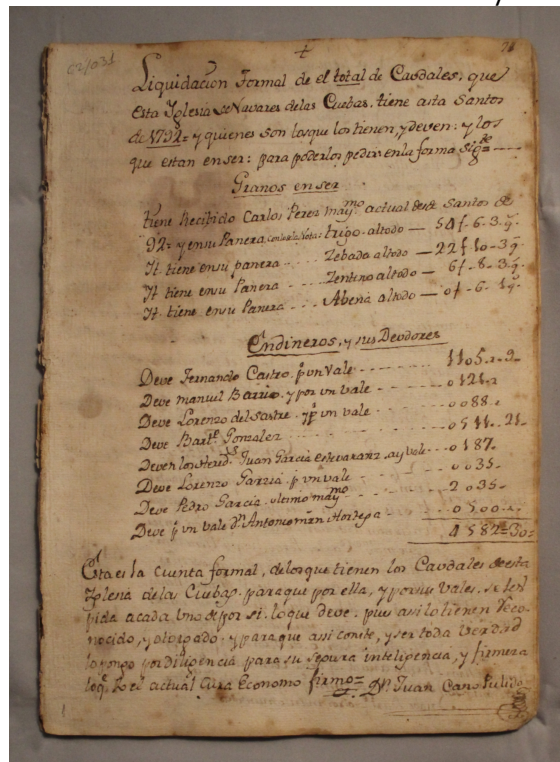 62/031
+
Liquidacion Formal de el total de Caudales, que
Esta Yglesia de Navares delas Cuebas, tiene asta Santos
de 1792= y quienes son los que los tienen, y deven: y los
que estan en ser: para poderlos pedir en la forma sig.te
Granos en ser
tiene Recibido Carlos Perez may.mo actual desde Santos de
92= y en su Panera trigo altodo — 54 f - 6 - 3 q.
It. tiene en su panera - - - Zebada altodo — 22 f - 10 - 3 q.
It. tiene en su Panera - - - Zenteno altodo — 6 f - 8 - 3 q.
It. tiene en su Panera - - - Abena altodo — 0 f - 6 - 1 q.
En dineros, y sus Deudores
Deve Fernando Castro. p.r un Vale - - - 1105 - 9-
Deve manuel Barrio. y por un vale - - - 0121-
Deve Lorenzo del Sastre. y p.r un vale - - - 0088-
Deve Bar.e Gonzalez - - - 0511 - 21-
Deven los Hered.s Juan Garcia ay vale - - 0187-
Deve Lorenzo Garzia. p.r un vale - - - 0035-
Deve Pedro Garcia. ultimo may.mo - - - 2035-
Deve p.r un Vale D.n Antonio Hortega - - - 0500-
4582=30=
Esta es la Cuenta formal, de los que tienen los Caudales de esta
Yglesia delas Cuebas, para que por ella, y por sus Vales, se les
pida acada Uno de por si, lo que deve: pues asi lo tienen Reco-
nocido, y para que asi conste, y ser toda Verdad
lo pongo por Diligencia para su segura inteligencia, y firmeza
actual Cura Economo firmo= D.n Juan Cano Pulido